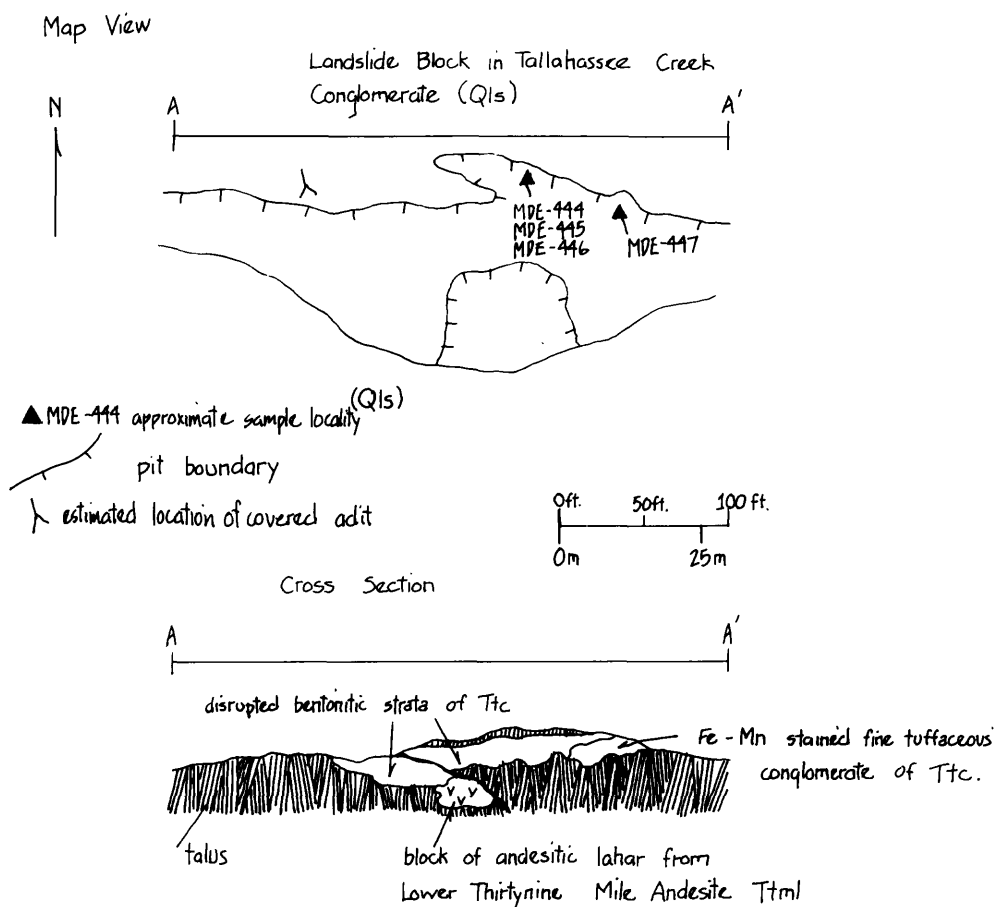 Map View
Landslide Block in Tallahassee Creek
Conglomerate (Qls)
N
A
A'
MDE-444
MDE-445
MDE-446
MDE-447
(Qls)
MDE-444 approximate sample locality
pit boundary
estimated location of covered adit
0ft. 50ft. 100 ft.
0m 25m
Cross Section
A
A'
disrupted bentonitic strata of Ttc
Fe-Mn stained fine tuffaceous
conglomerate of Ttc.
talus
block of andesitic lahar from
Lower Thirtynine Mile Andesite Ttml